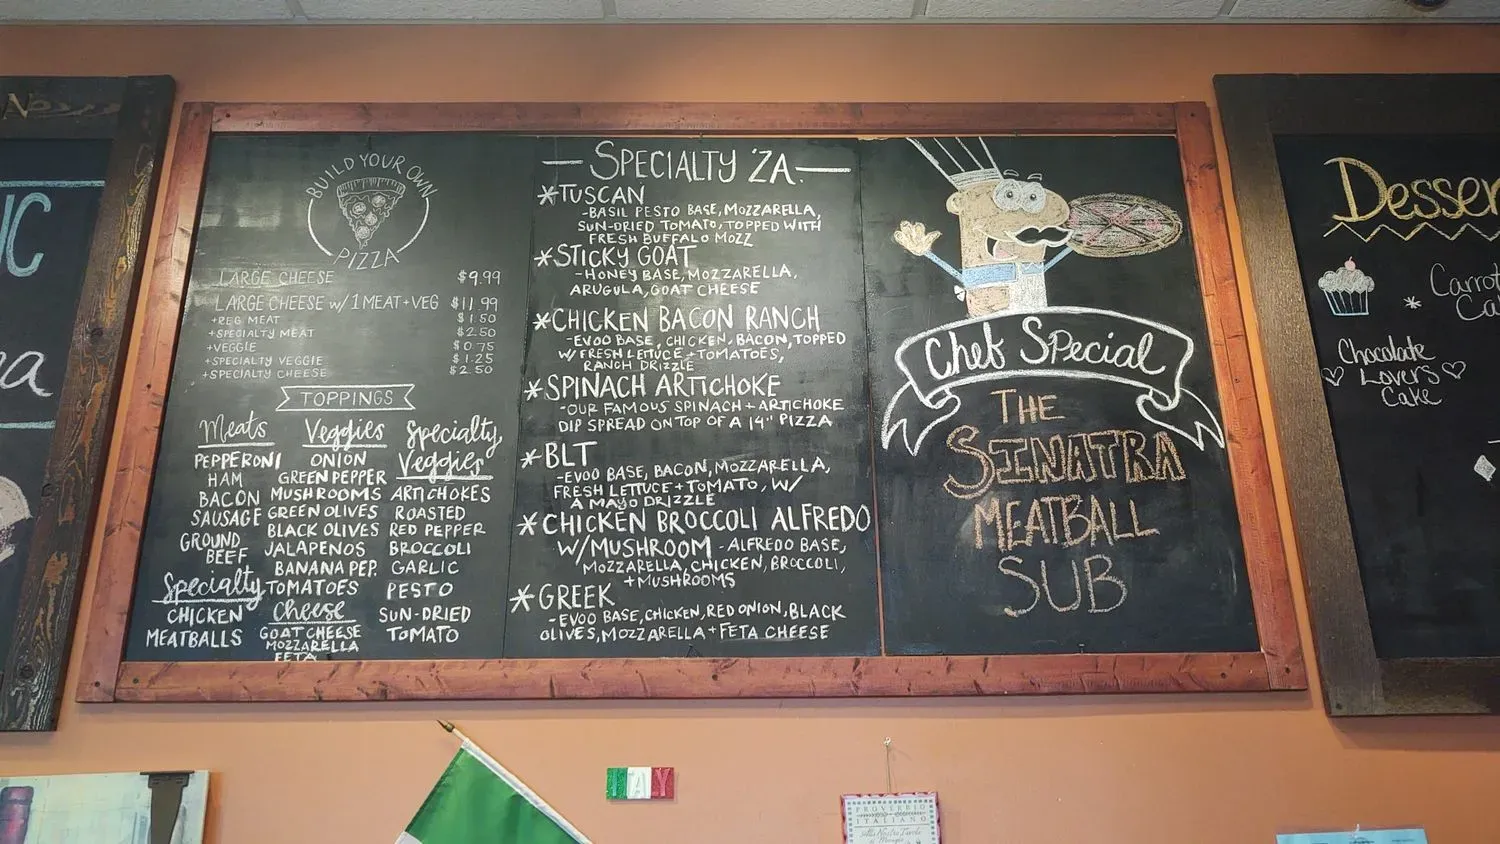 BUILD YOUR OWN
PIZZA
LARGE CHEESE $9.99
LARGE CHEESE w/ 1 MEAT+VEG $11.99
+REG MEAT $1.50
+SPECIALTY MEAT $2.50
+VEGGIE $0.75
+SPECIALTY VEGGIE $1.25
+SPECIALTY CHEESE $2.50
TOPPINGS
Meats
PEPPERONI
HAM
BACON
SAUSAGE
GROUND
BEEF
Specialty
CHICKEN
MEATBALLS
Veggies
ONION
GREEN PEPPER
MUSHROOMS
GREEN OLIVES
BLACK OLIVES
JALAPENOS
BANANA PEP.
TOMATOES
Cheese
GOAT CHEESE
MOZZARELLA
FETA
Specialty
Veggies
ARTICHOKES
ROASTED
RED PEPPER
BROCCOLI
GARLIC
PESTO
SUN-DRIED
TOMATO
SPECIALTY 'ZA
*TUSCAN
-BASIL PESTO BASE, MOZZARELLA,
SUN-DRIED TOMATO, TOPPED WITH
FRESH BUFFALO MOZZ
*STICKY GOAT
-HONEY BASE, MOZZARELLA,
ARUGULA, GOAT CHEESE
*CHICKEN BACON RANCH
-EVOO BASE, CHICKEN, BACON, TOPPED
W/ FRESH LETTUCE + TOMATOES,
RANCH DRIZZLE
*SPINACH ARTICHOKE
-OUR FAMOUS SPINACH + ARTICHOKE
DIP SPREAD ON TOP OF A 14" PIZZA
*BLT
-EVOO BASE, BACON, MOZZARELLA,
FRESH LETTUCE + TOMATO, W/
A MAYO DRIZZLE
*CHICKEN BROCCOLI ALFREDO
W/MUSHROOM -ALFREDO BASE,
MOZZARELLA, CHICKEN, BROCCOLI,
+MUSHROOMS
*GREEK
-EVOO BASE, CHICKEN, RED ONION, BLACK
OLIVES, MOZZARELLA + FETA CHEESE
Chef Special
THE
SINATRA
MEATBALL
SUB
Desser
* Carrot
Ca
Chocolate
Lovers
Cake
ITALY
PROVERBIO
ITALIANO
Alla Nostra Tavola